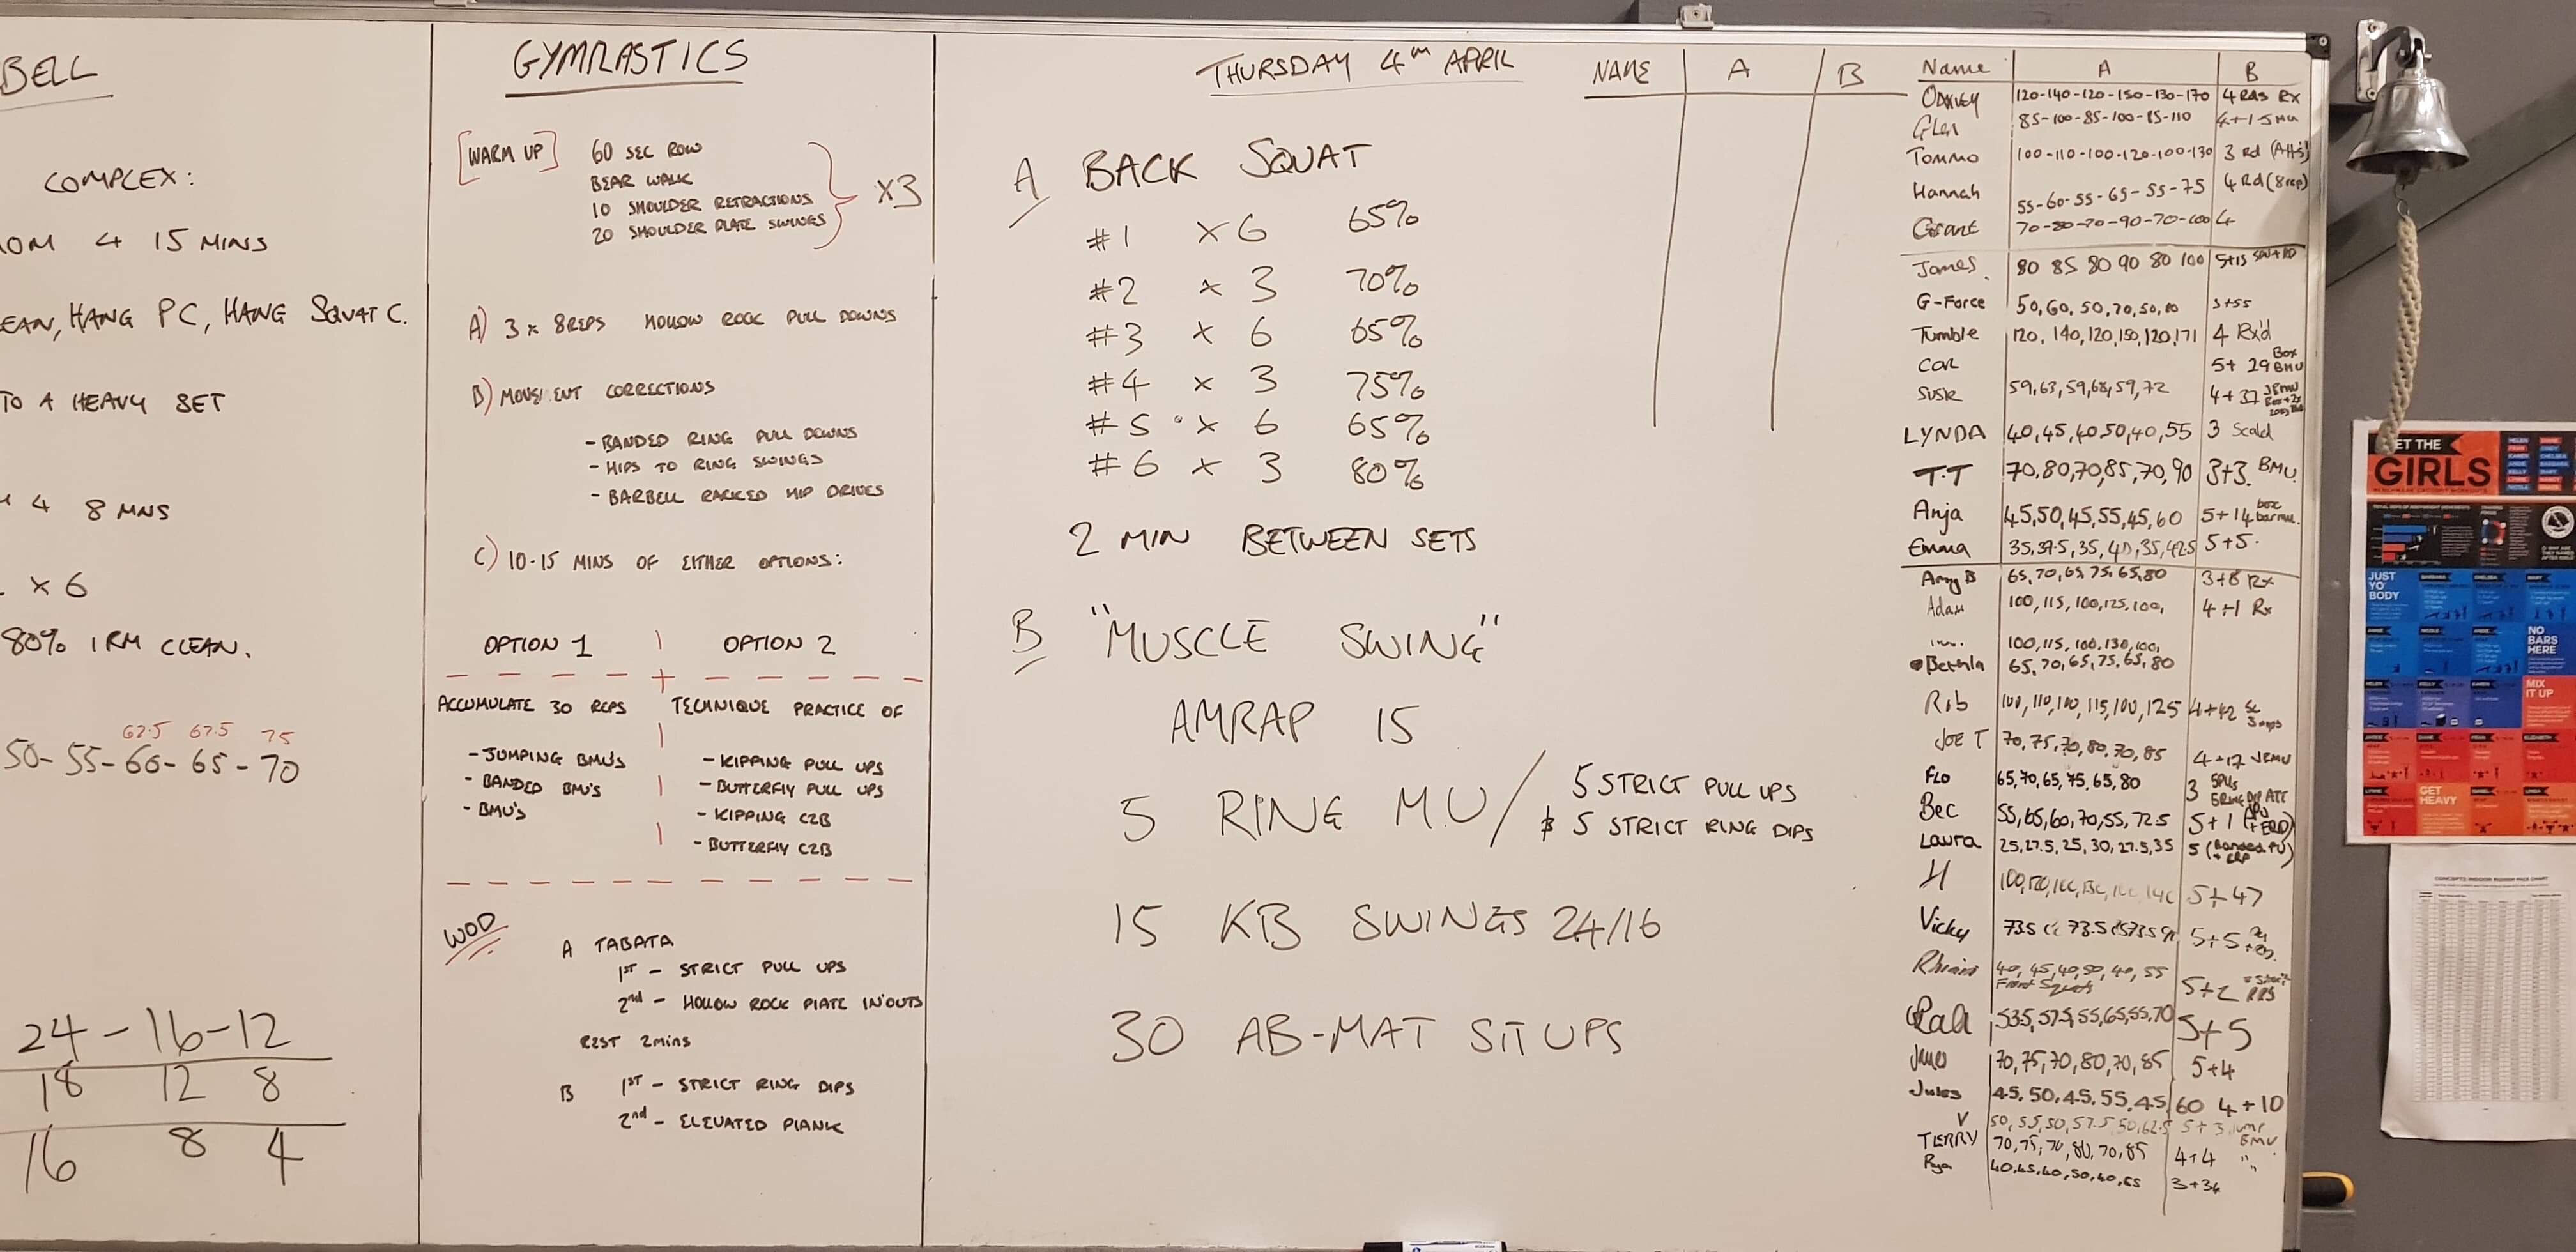 BELL
COMPLEX:
OM 4 15 MINS
EAN, HANG PC, HANG SQUAT C.
TO A HEAVY SET
4 8 MNS
x 6
80% 1RM CLEAN.
62.5 67.5 75
50-55-60-65-70
24-16-12
18 12 8
16 8 4
GYMNASTICS
[WARM UP] 60 SEC ROW
BEAR WALK
10 SHOULDER RETRACTIONS
20 SHOULDER PLATE SWINGS
x3
A) 3 x 8REPS HOLLOW ROCK PULL DOWNS
B) MOVEMENT CORRECTIONS
- BANDED RING PULL DOWNS
- HIPS TO RING SWINGS
- BARBELL RACKED HIP DRIVES
C) 10-15 MINS OF EITHER OPTIONS:
OPTION 1 OPTION 2
ACCUMULATE 30 REPS TECHNIQUE PRACTICE OF
- JUMPING BMU'S - KIPPING PULL UPS
- BANDED BMU'S - BUTTERFLY PULL UPS
- BMU'S - KIPPING C2B
- BUTTERFLY C2B
WOD
A TABATA
1ST - STRICT PULL UPS
2nd - HOLLOW ROCK PLATE IN'OUTS
REST 2mins
B 1ST - STRICT RING DIPS
2nd - ELEVATED PLANK
THURSDAY 4TH APRIL
A BACK SQUAT
#1 x 6 65%
#2 x 3 70%
#3 x 6 65%
#4 x 3 75%
#5 x 6 65%
#6 x 3 80%
2 MIN BETWEEN SETS
B "MUSCLE SWING"
AMRAP 15
5 RING M.U / 5 STRICT PULL UPS
& 5 STRICT RING DIPS
15 KB SWINGS 24/16
30 AB-MAT SIT UPS
NAME A B
Name A B
120-140-120-150-130-170 4 RDS RX
Glen 85-100-85-100-85-110 4+1 5MU
Tommo 100-110-100-120-100-130 3 Rd
Hannah 55-60-55-65-55-75 4 Rd (8rep)
Grant 70-80-70-90-70-100 4
James 80 85 80 90 80 100
G-Force 50,60,50,70,50,80 3+55
Tumble 120,140,120,150,120,171 4 Rx'd
5+29 Box BMU
59,63,59,68,59,72 4+37
LYNDA 40,45,40,50,40,55 3 Scaled
T.T 70,80,70,85,70,90 3+3. BMU.
Anja 45,50,45,55,45,60 5+14 box barmu.
Emma 35,37.5,35,40,35,42.5 5+5.
Amy B 65,70,65,75,65,80 3+8 Rx
Adam 100,115,100,125,100, 4+1 Rx
100,115,100,130,100,
65,70,65,75,65,80
Rob 100,110,100,115,100,125 4+42
JOE T 70,75,70,80,70,85 4+17 JBMU
Flo 65,70,65,75,65,80 3
Bec 55,65,60,70,55,72.5 5+1
Laura 25,27.5,25,30,27.5,35 5 (Banded PU)
H 5+47
Vicky 5+5
40,45,40,50,40,55 5+2
Front Squats
53.5,57.5,55,65,55,70 5+5
70,75,70,80,70,85 5+4
Jules 45,50,45,55,45,60 4+10
V 50,55,50,57.5,50,62.5 5+3 Jump BMU
TERRY 70,75,70,80,70,85 4+4 "
40,45,40,50,40,55
GET THE
GIRLS
JUST YO' BODY
NO BARS HERE
MIX IT UP
GET HEAVY